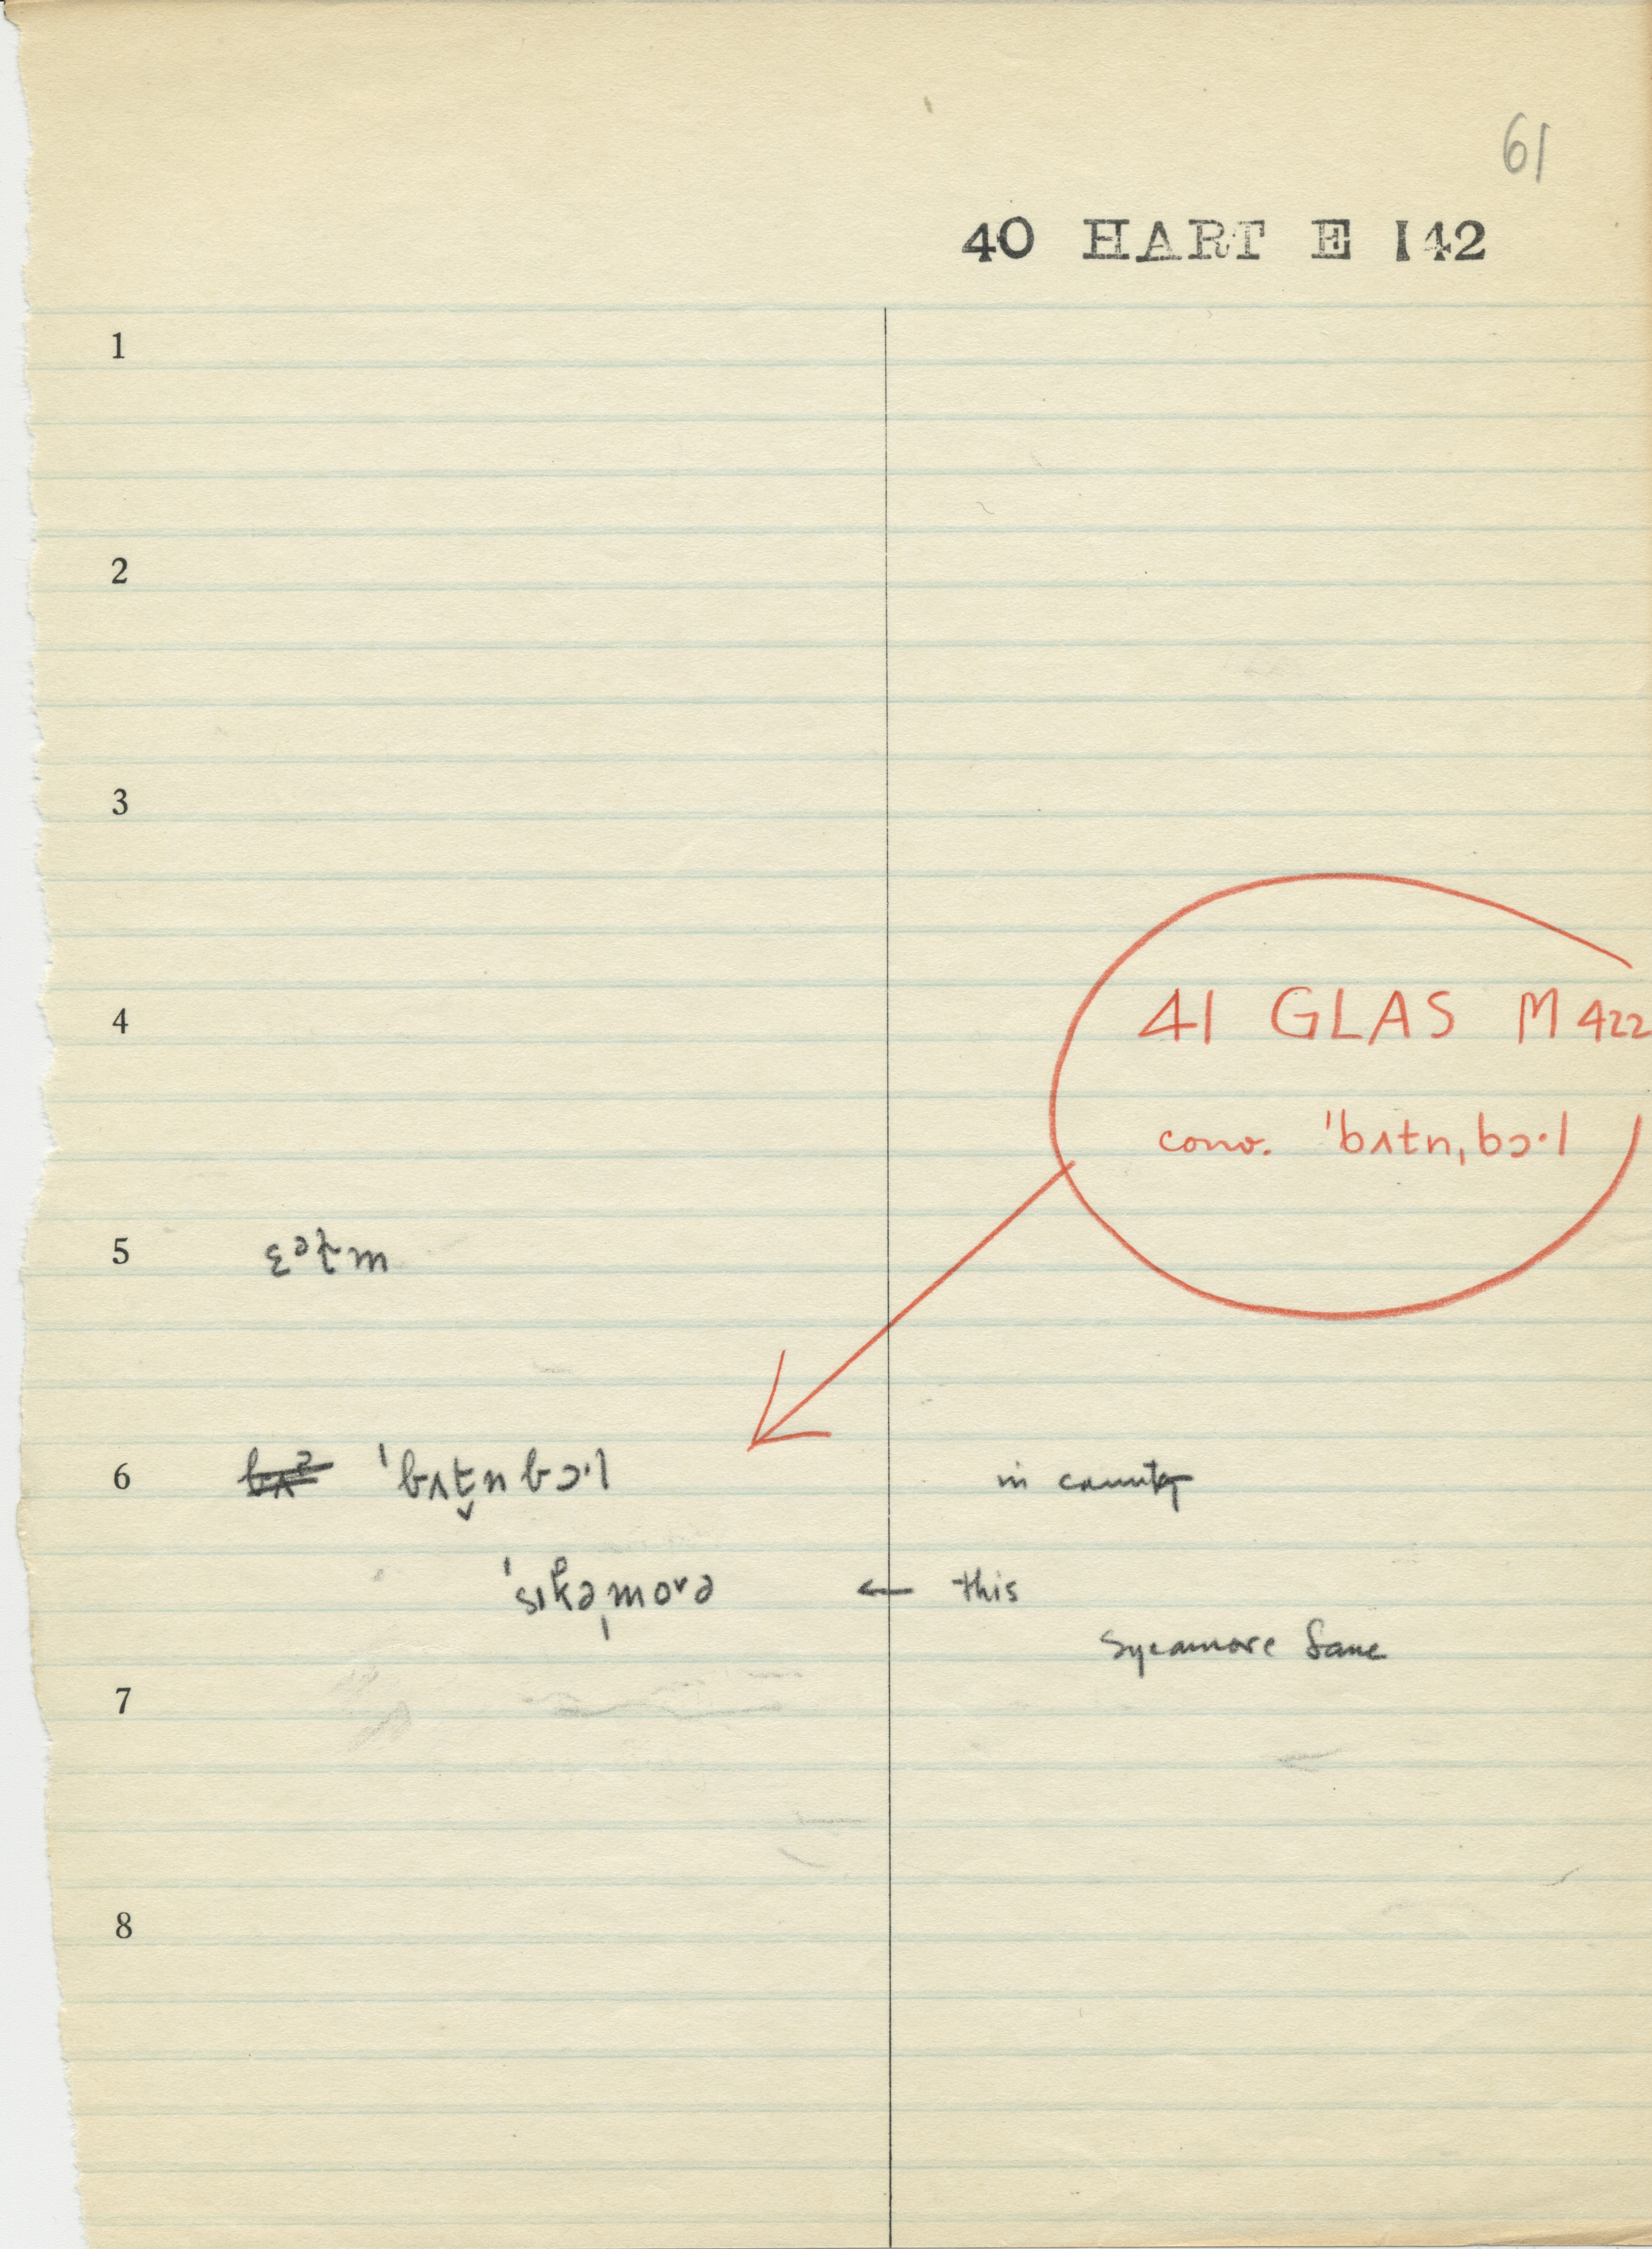 61
40 HART E 142
1
2
3
4
41 GLAS M 422
conv. ˈbʌtnˌbɔ·l
5
6 ˈbʌt̬nbɔ·l in county
ˈsɪkəˌmoᵛə ← this
Sycamore Lane
7
8